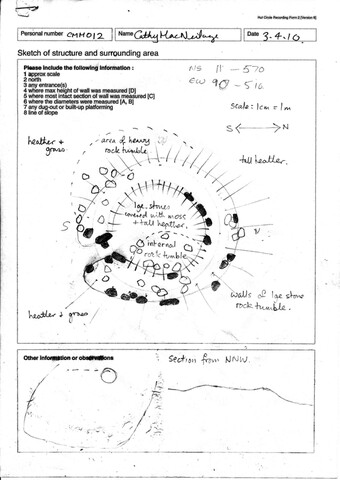 Hut Circle Recording Form 2 (Version 6)
Personal number CMH012 Name Cathy MacNeilage Date 3.4.10.
Sketch of structure and surrounding area
Please include the following information :
1 approx scale
2 north
3 any entrance(s)
4 where max height of wall was measured [D]
5 where most intact section of wall was measured [C]
6 where the diameters were measured [A, B]
7 any dug-out or built-up platforming
8 line of slope
NS 11 - 570
EW 90 - 516
scale: 1cm = 1m
S N
heather &
grass
area of heavy
rock tumble
tall heather.
lge. stones
covered with moss
& tall heather.
S
N
internal
rock tumble
walls of lge stone
rock tumble.
heather & grass
Other information or observations
section from NNW.